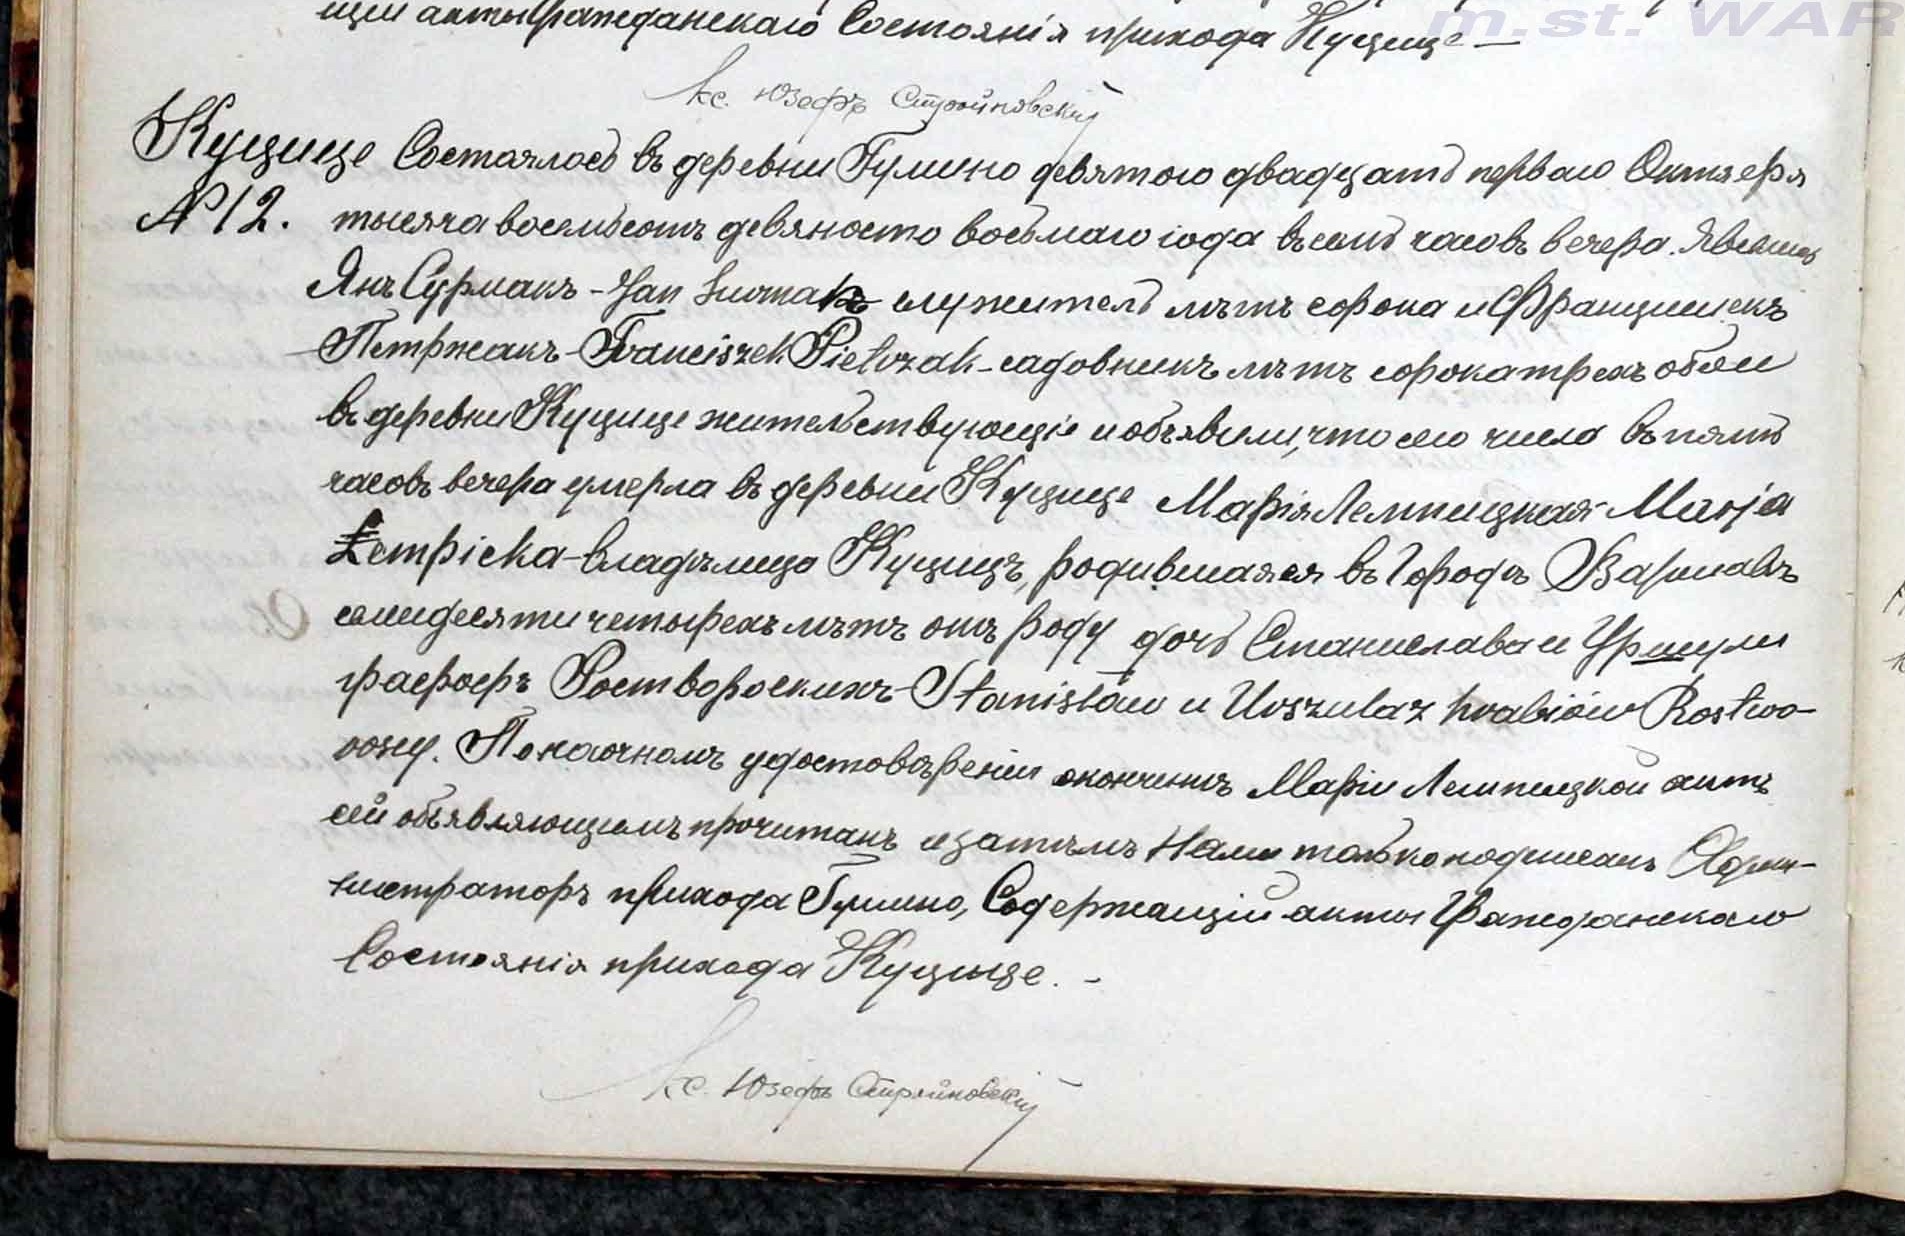 m.st. WAR
щій акты Гражданскаго Состоянія прихода Куцице —
Кс. Юзефъ Стройновскій
Куцице Состоялось въ деревни Гумино девятого двадцать перваго Октября
№ 12. тысяча восемьсотъ девяносто восьмаго года въ семь часовъ вечера. Явились
Янъ Сурмакъ - Jan Surmak служитель лѣтъ сорока и Францишекъ
Петржакъ - Franciszek Pietrzak - садовникъ лѣтъ сорока трехъ обои
въ деревни Куцице жительствующіе и объявили, что сего числа въ пять
часовъ вечера умерла въ деревни Куцице Марія Лемпицкая Marja
Łempicka - владѣлица Куцицъ, родившаяся въ Городѣ Варшавѣ
семидесяти четырехъ лѣтъ отъ роду дочь Станислава и Уршули
Роствороскихъ - Stanisław и Urszula z hrabiów Rostwo-
rowy. По наочномъ удостовѣреніи о кончинѣ Маріи Лемпицкой актъ
сей объявляющимъ прочитанъ и затѣмъ Нами только подписанъ Адми-
нистраторъ прихода Гумино, Содержащій акты Гражданскаго
Состоянія прихода Куцице. -
Кс. Юзефъ Стройновскій